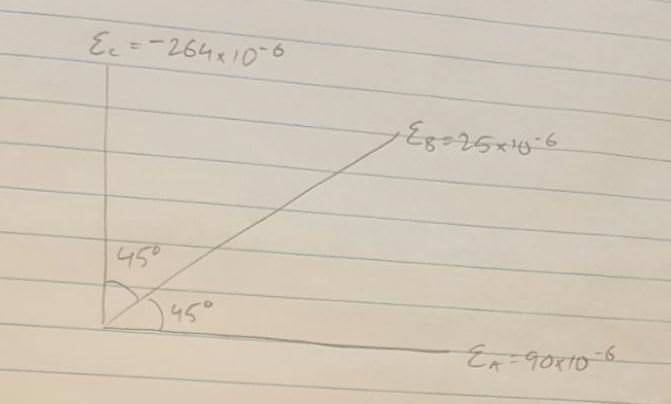 ε_c = -264×10^-6
ε_B = 25×10^-6
45°
45°
ε_A = 90×10^-6